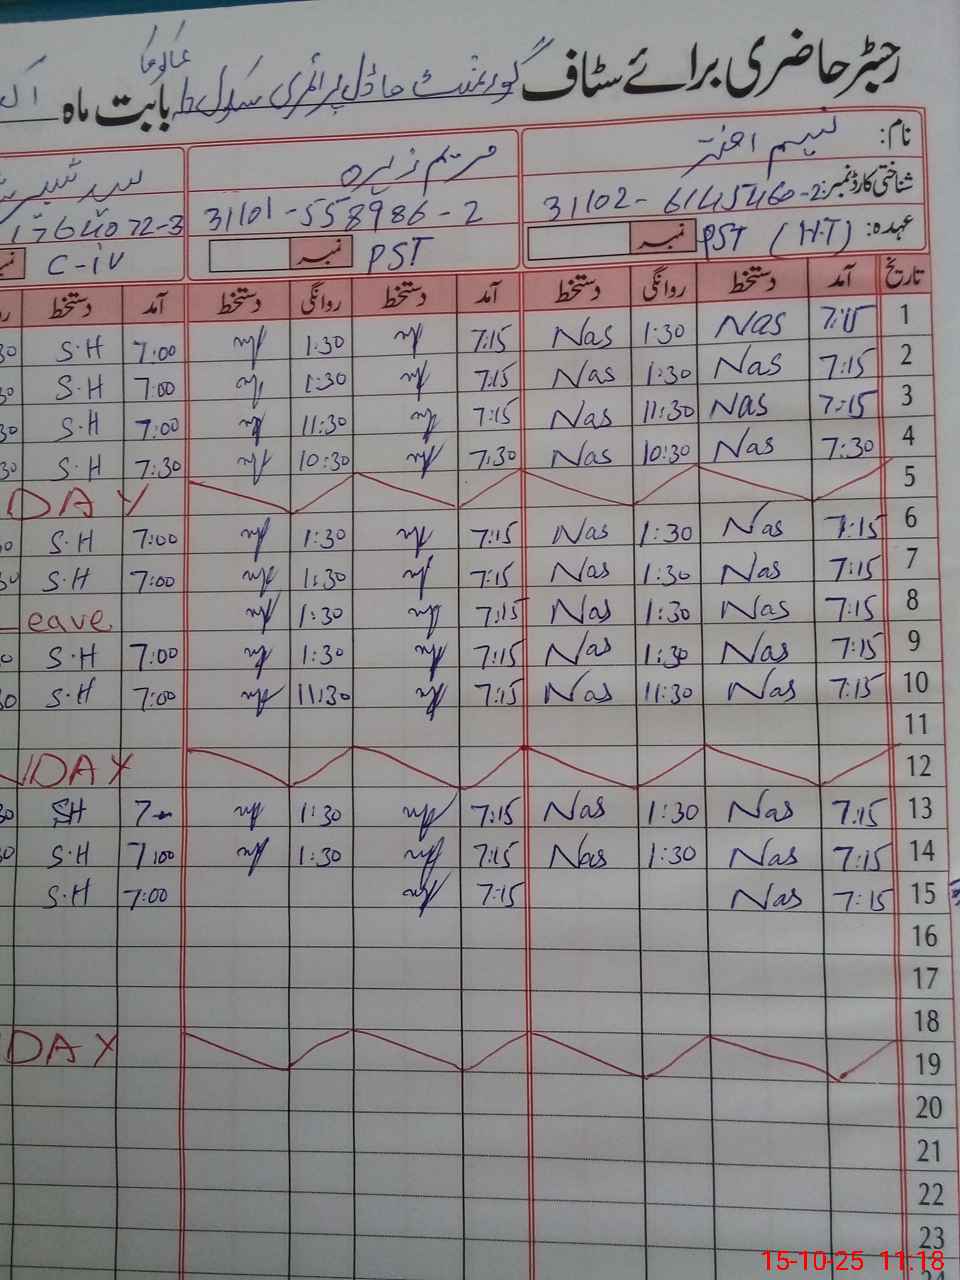 رجسٹر حاضری برائے سٹاف گورنمنٹ ماڈل پرائمری سکول بابت ماہ
نام: نسیم اختر مریم زہرہ
شناختی کارڈ نمبر: 31102-6145460-2 31101-558986-2 1764072-3
عہدہ: PST (H.T) نمبر PST نمبر C-iv
تاریخ آمد دستخط روانگی دستخط آمد دستخط روانگی دستخط آمد دستخط
1 7:15 Nas 1:30 Nas 7:15 1:30 7:00 S.H 30
2 7:15 Nas 1:30 Nas 7:15 1:30 7:00 S.H 30
3 7:15 Nas 11:30 Nas 7:15 11:30 7:00 S.H 30
4 7:30 Nas 10:30 Nas 7:30 10:30 7:30 S.H 30
5 DAY
6 7:15 Nas 1:30 Nas 7:15 1:30 7:00 S.H 30
7 7:15 Nas 1:30 Nas 7:15 1:30 7:00 S.H 30
8 7:15 Nas 1:30 Nas 7:15 1:30 Leave
9 7:15 Nas 1:30 Nas 7:15 1:30 7:00 S.H 30
10 7:15 Nas 11:30 Nas 7:15 11:30 7:00 S.H 30
11
12 NDAY
13 7:15 Nas 1:30 Nas 7:15 1:30 7 SH 30
14 7:15 Nas 1:30 Nas 7:15 1:30 7:00 S.H 30
15 7:15 Nas 7:15 7:00 S.H
16
17
18
19 DAY
20
21
22
23
24
15-10-25 11:18